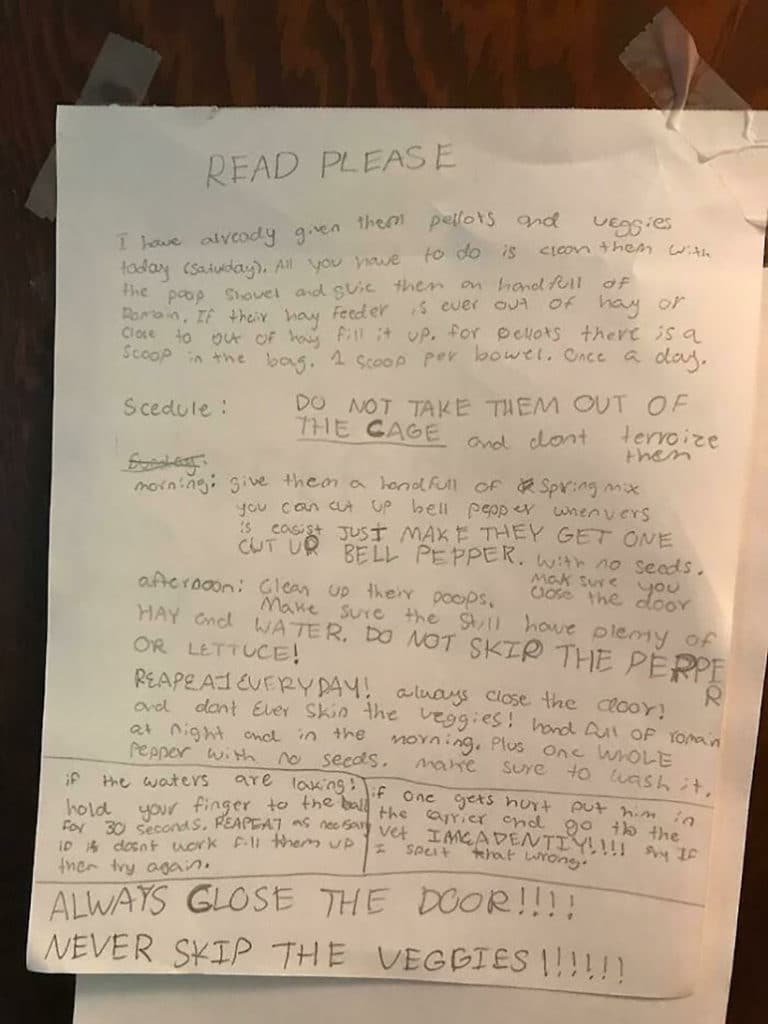 READ PLEASE
I have already given them pellots and veggies
today (Saturday). All you have to do is clean them with
the poop shovel and guie them an handfull of
Romain. If their hay feeder is ever out of hay or
close to out of hay fill it up. for pellots there is a
scoop in the bag. 1 scoop per bowel. Once a day.
Scedule: DO NOT TAKE THEM OUT OF
THE CAGE and dont terroize
them
Sunday:
morning: give them a handfull of spring mix
you can cut up bell pepper whenvers
is easist JUST MAKE THEY GET ONE
CUT UP BELL PEPPER. with no seeds.
afternoon: Clean up their poops. Mak sure you
close the door
Make sure the still have plenty of
HAY and WATER. DO NOT SKIP THE PEPPE
R
OR LETTUCE!
REAPEAT EVERYDAY! always close the door!
and dont Ever skip the veggies! hand full of romain
at night and in the morning. Plus one WHOLE
Pepper with no seeds. make sure to wash it.
if the waters are laking!
hold your finger to the ball
for 30 seconds. REAPEAT as necisary
if it dosnt work fill them up
then try again.
if one gets hurt put him in
the carrier and go tto the
vet IMEADENTIY!!!! sry IF
I spelt that wrong.
ALWAYS CLOSE THE DOOR!!!!
NEVER SKIP THE VEGGIES!!!!!!